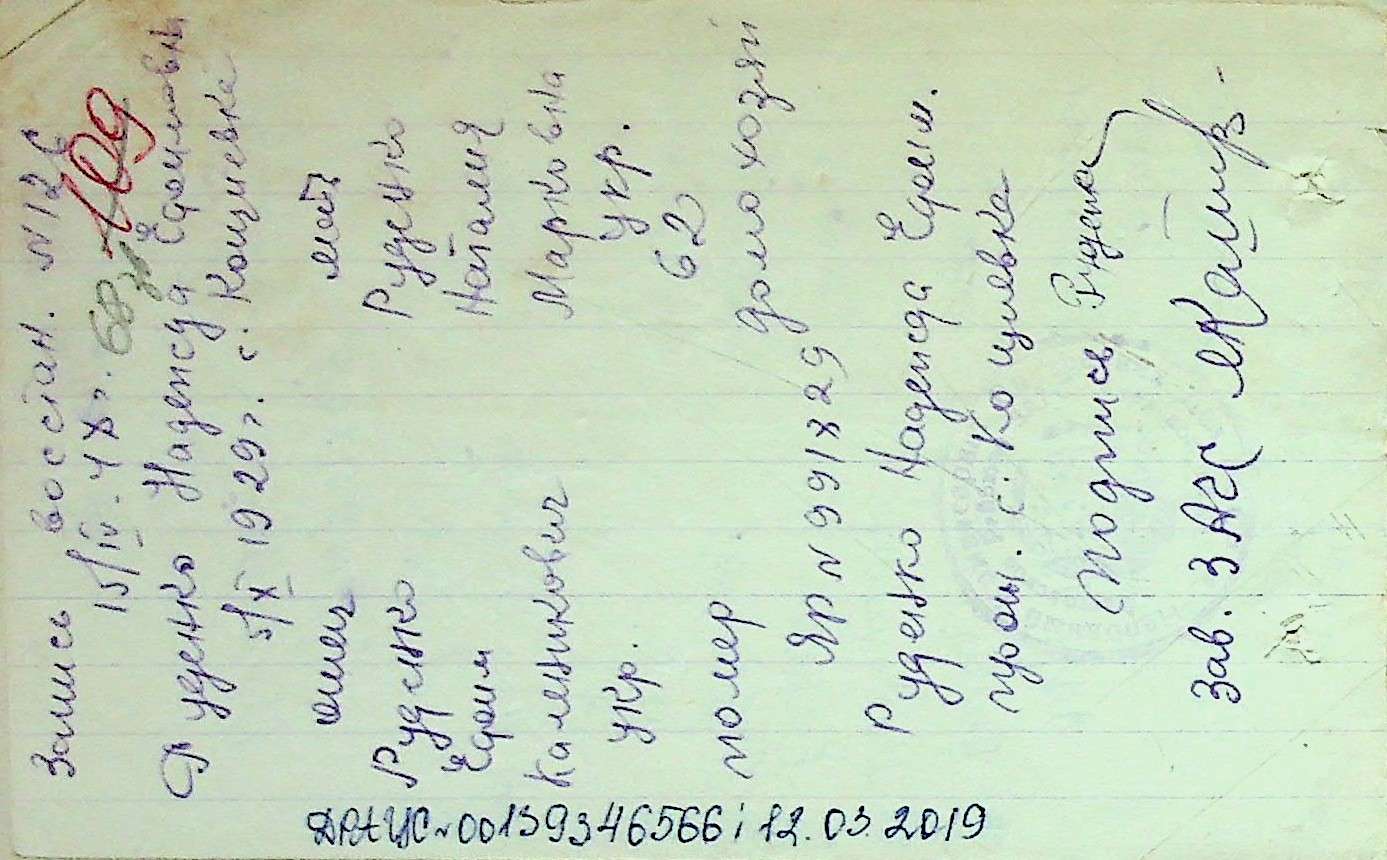 Запись восстан. N 126
109
15/IV-47 г.
Руденко Надежда Ефимовна
5/X 1929 г. с. Кощиевка
отец мать
Руденко Руденко
Ефим Наталия
Каленикович Марковна
укр. укр.
62
помер домохозяй
ЯР N 991829
Руденко Надежда Ефим.
прож. с. Кощиевка
Подпись Руденко
Зав. ЗАГС
ДРАЦС N 00139346566 і 12.03.2019